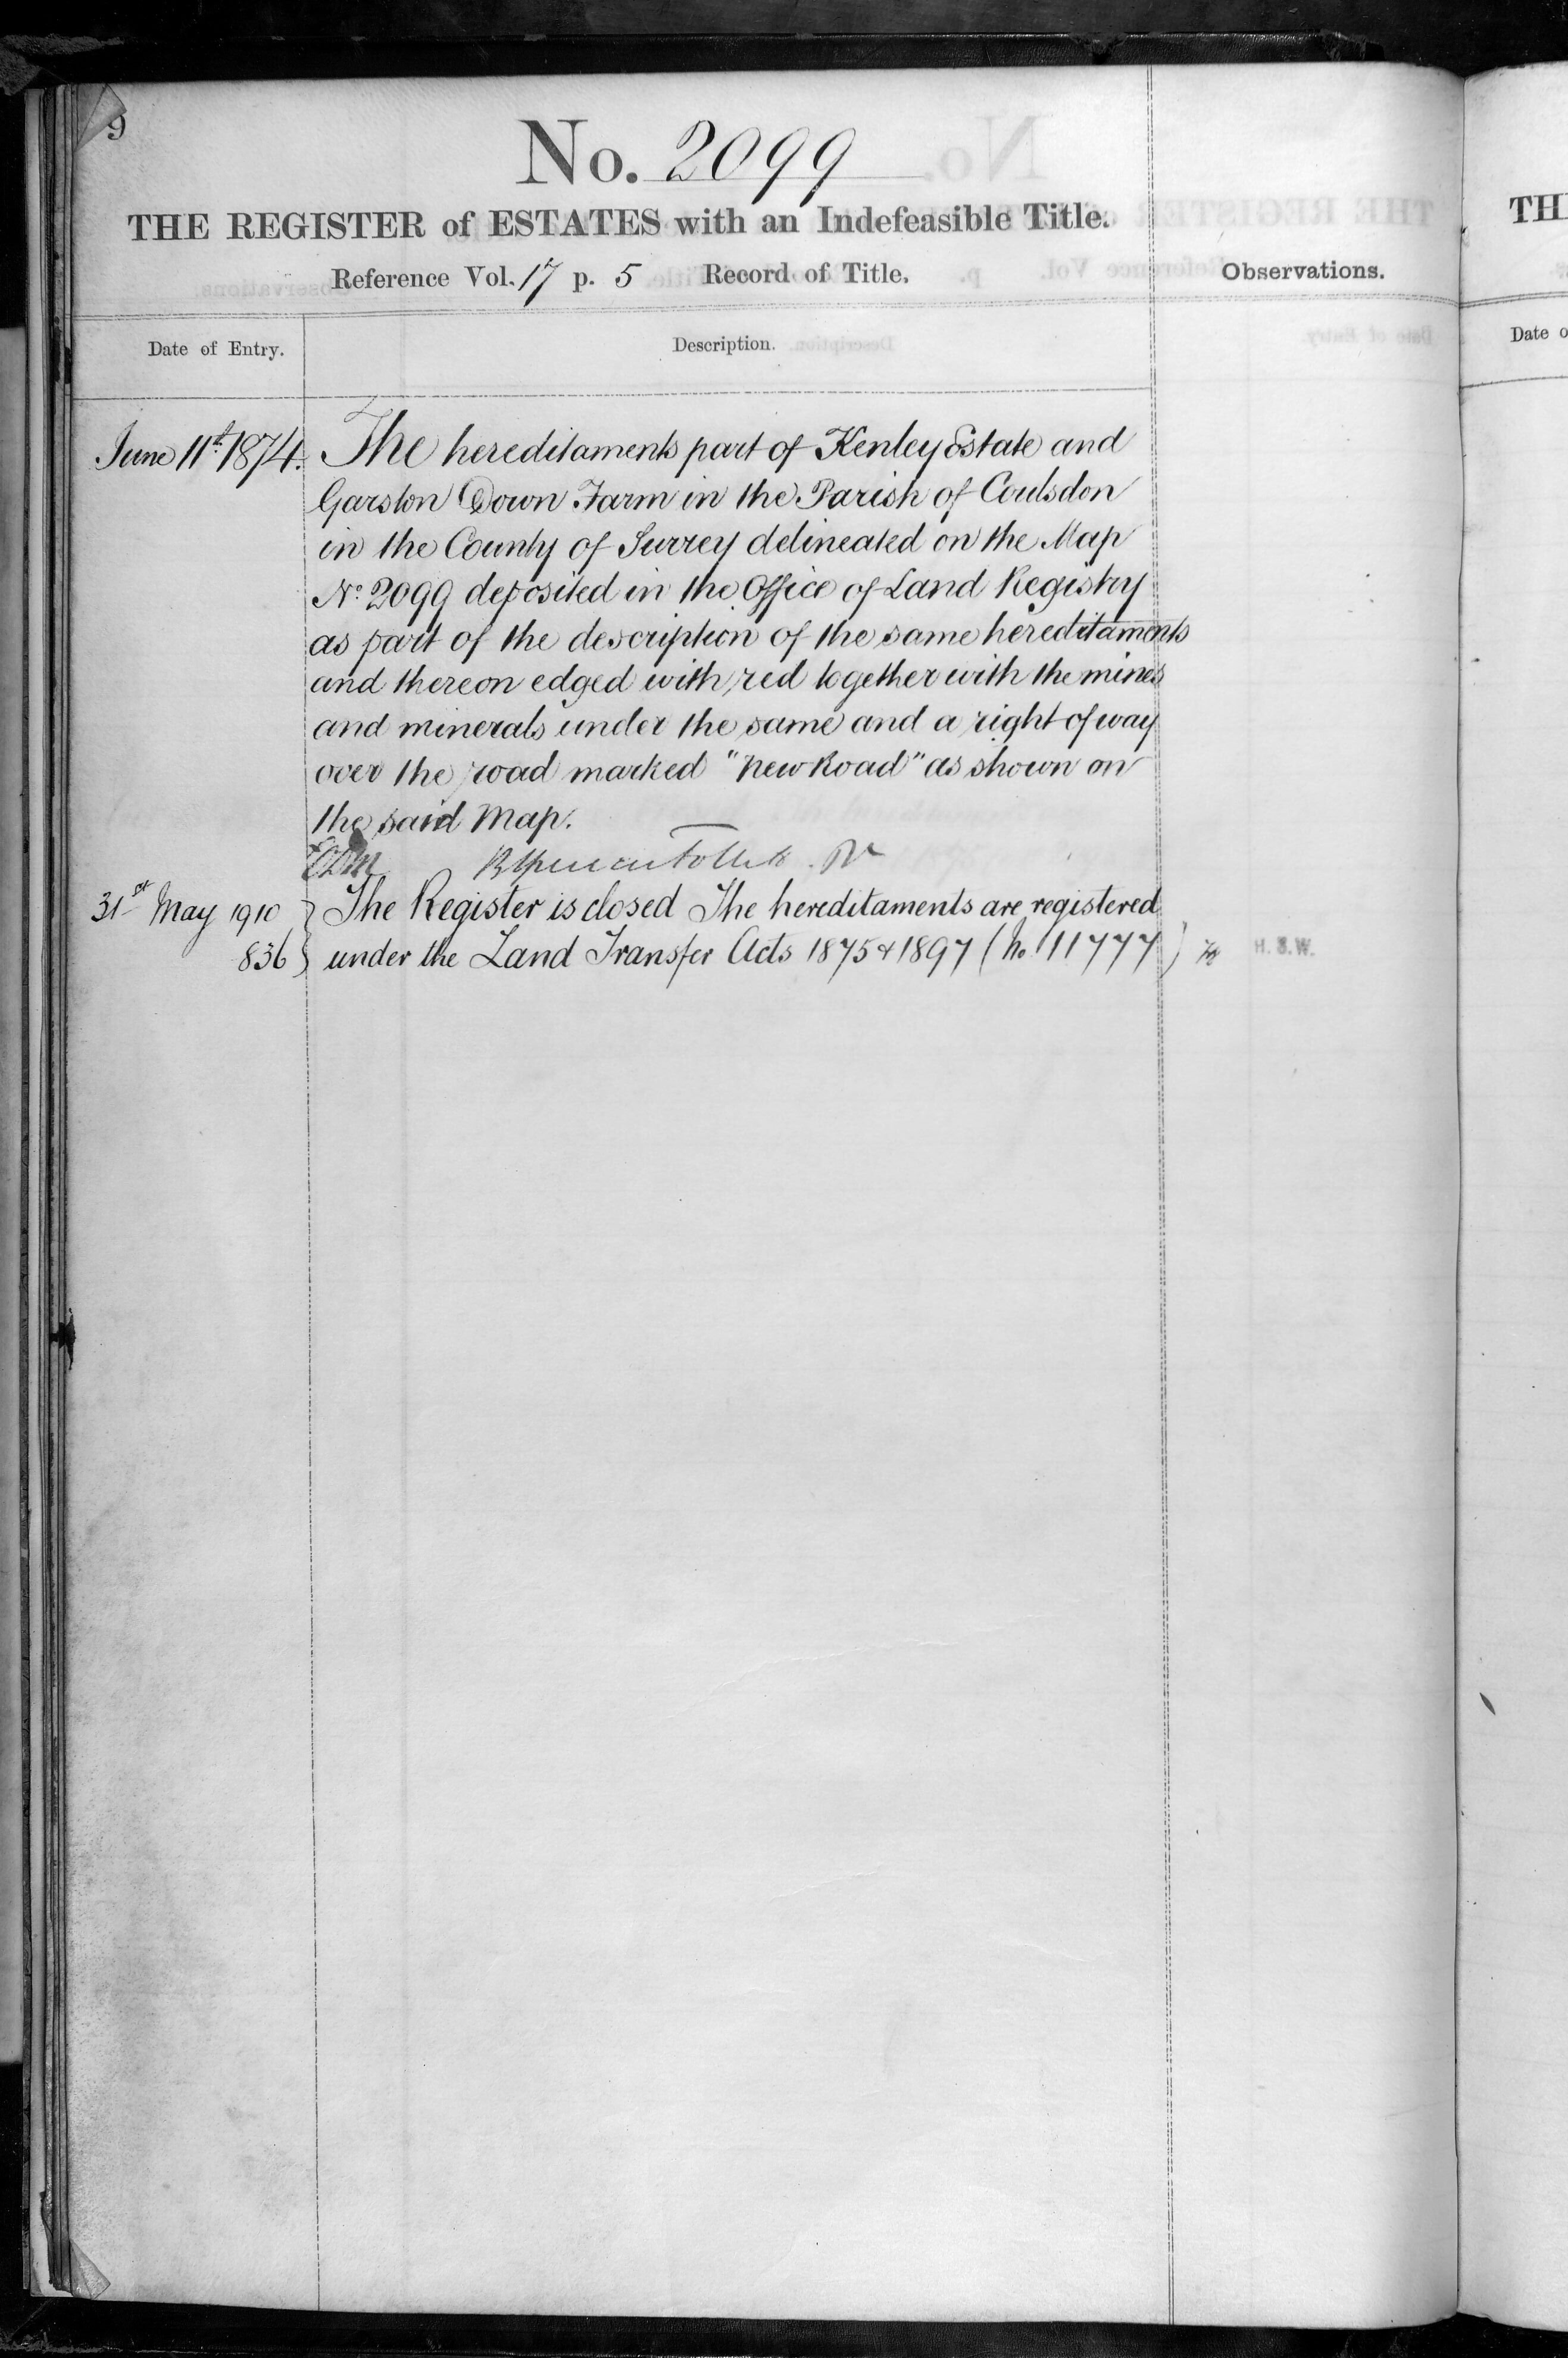 9
No. 2099
THE REGISTER of ESTATES with an Indefeasible Title.
Reference Vol. 17 p. 5 Record of Title.
Observations.
Date of Entry.
Description.
June 11th 1874.
The hereditaments part of Kenley Estate and
Garston Down Farm in the Parish of Coulsdon
in the County of Surrey delineated on the Map
No. 2099 deposited in the Office of Land Registry
as part of the description of the same hereditaments
and thereon edged with red together with the mines
and minerals under the same and a right of way
over the road marked "New Road" as shown on
the said Map.
31st May 1910
836
The Register is closed The hereditaments are registered
under the Land Transfer Acts 1875 & 1897 (No 11777)
H.S.W.
TH
Date o